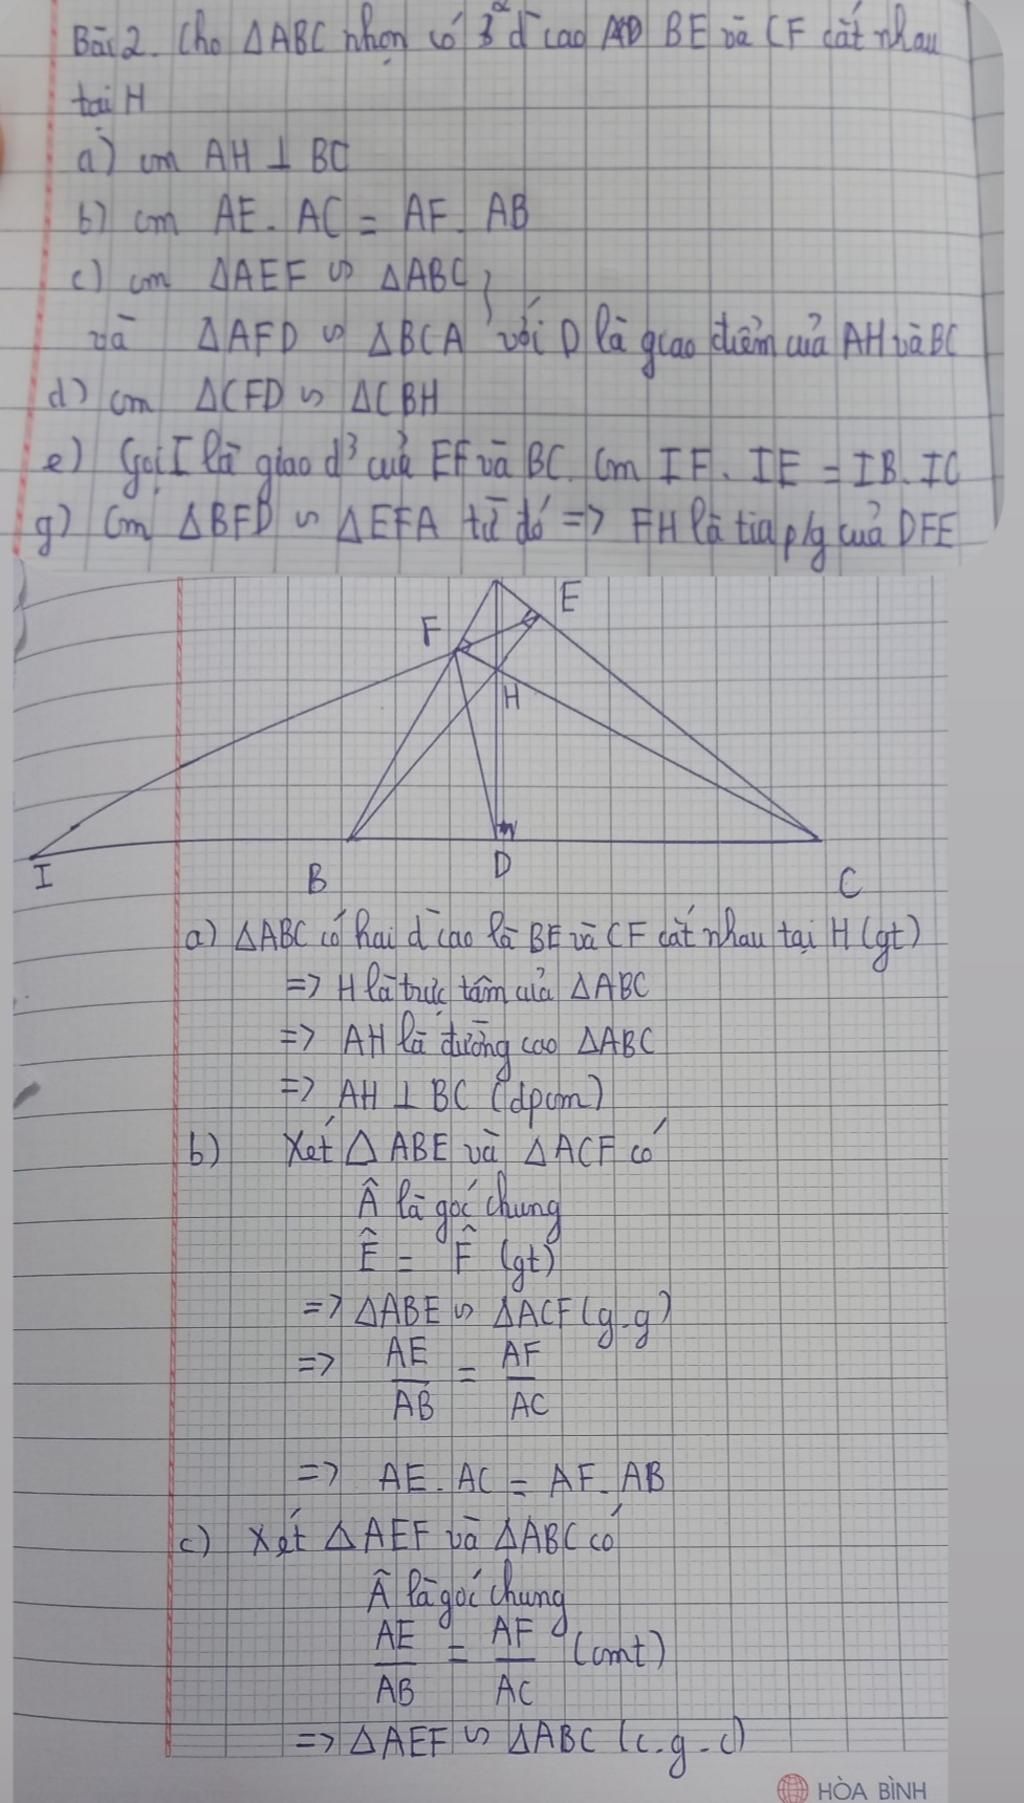 Bài 2. Cho ΔABC nhọn có 3 đ cao AD BE và CF cắt nhau
tại H
a) cm AH ⊥ BC
b) cm AE. AC = AF. AB
c) cm ΔAEF ∽ ΔABC
và ΔAFD ∽ ΔBCA với D là giao điểm của AH và BC
d) cm ΔCFD ∽ ΔCBH
e) Gọi I là giao đ³ của EF và BC. Cm IF. IE = IB. IC
g) Cm ΔBFD ∽ ΔEFA từ đó => FH là tia p/g của DFE
E
F
H
I
B
D
C
a) ΔABC có hai đ cao là BE và CF cắt nhau tại H (gt)
=> H là trực tâm của ΔABC
=> AH là đường cao ΔABC
=> AH ⊥ BC (dpcm)
b) Xét Δ ABE và ΔACF có
Â là góc chung
Ê = F̂ (gt)
=> ΔABE ∽ ΔACF (g-g)
=> AE/AB = AF/AC
=> AE. AC = AF. AB
c) Xét ΔAEF và ΔABC có
Â là góc chung
AE/AB = AF/AC (cmt)
=> ΔAEF ∽ ΔABC (c-g-c)
HÒA BÌNH